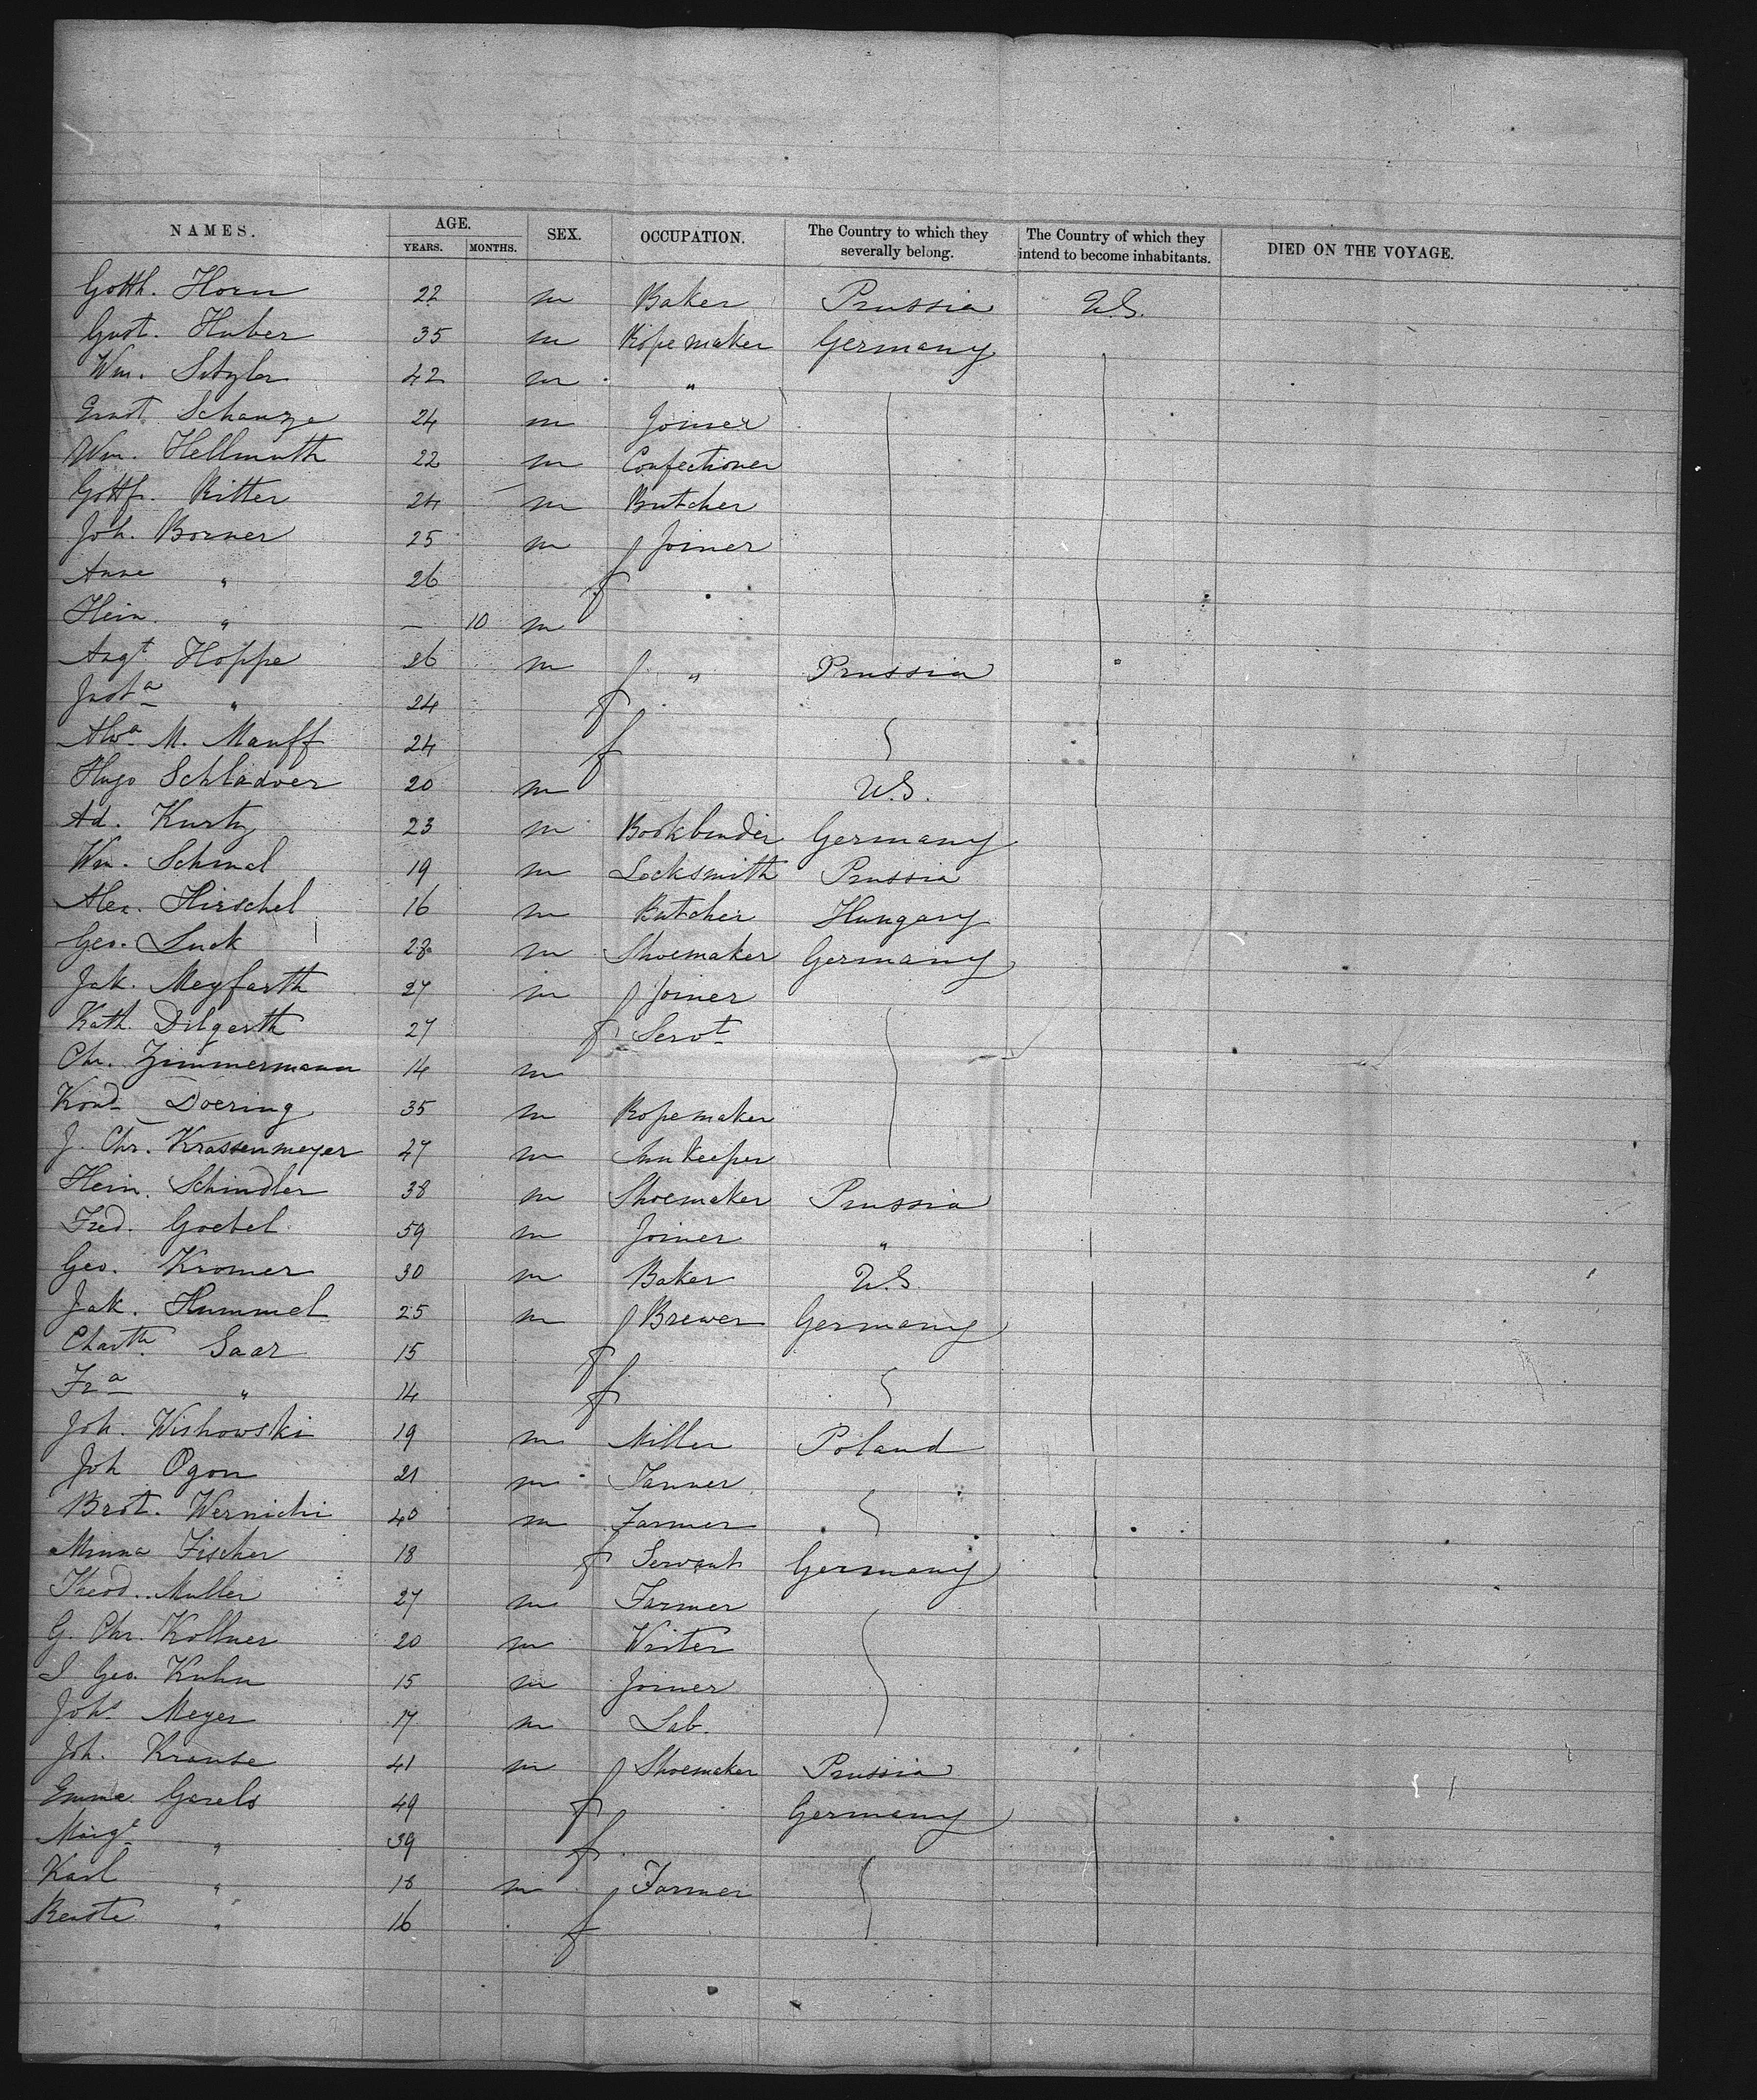 NAMES. AGE. YEARS. MONTHS. SEX. OCCUPATION. The Country to which they severally belong. The Country of which they intend to become inhabitants. DIED ON THE VOYAGE.
Gotth. Horn 22 m Baker Prussia U.S.
Gust. Huber 35 m Ropemaker Germany
Wm. Sitzler 42 m "
Ernst Schanze 24 m Joiner
Wm. Hellmuth 22 m Confectioner
Gottf. Ritter 24 m Butcher
Joh. Borner 25 m Joiner
Anne " 26 f
Hein. " — 10 m
Augt. Hoppe 26 m " Prussia
Justa " 24 f
Alwa. M. Manff 24 f
Hugo Schladoer 20 m U.S.
Ad. Kurtz 23 m Bookbinder Germany
Wm. Schmal 19 m Locksmith Prussia
Alex. Hirschel 16 m Butcher Hungary
Geo. Luck 28 m Shoemaker Germany
Jak. Meyfarth 27 m Joiner
Kath. Dilgerth 27 f Servt
Chr. Zimmermann 14 m
Kond Doering 35 m Ropemaker
J. Chr. Krassenmeyer 47 m Innkeeper
Hein. Schindler 38 m Shoemaker Prussia
Fred. Goebel 59 m Joiner "
Geo. Kromer 30 m Baker U.S.
Jak. Hummel 25 m Brewer Germany
Saar 15 f
Fra " 14 f
Joh. Wishowski 19 m Miller Poland
Joh Ogon 21 m Tanner
Brot. Wernichi 40 m Farmer
Minna Fischer 18 f Servant Germany
Theod. Muller 27 m Farmer
G. Chr. Kollner 20 m Writer
J Geo. Kuhn 15 m Joiner
Johs Meyer 17 m Lab.
Joh. Krause 41 m Shoemaker Prussia
Emma Garels 49 f Germany
Margt " 39 f
Karl " 18 m Farmer
" 16 f